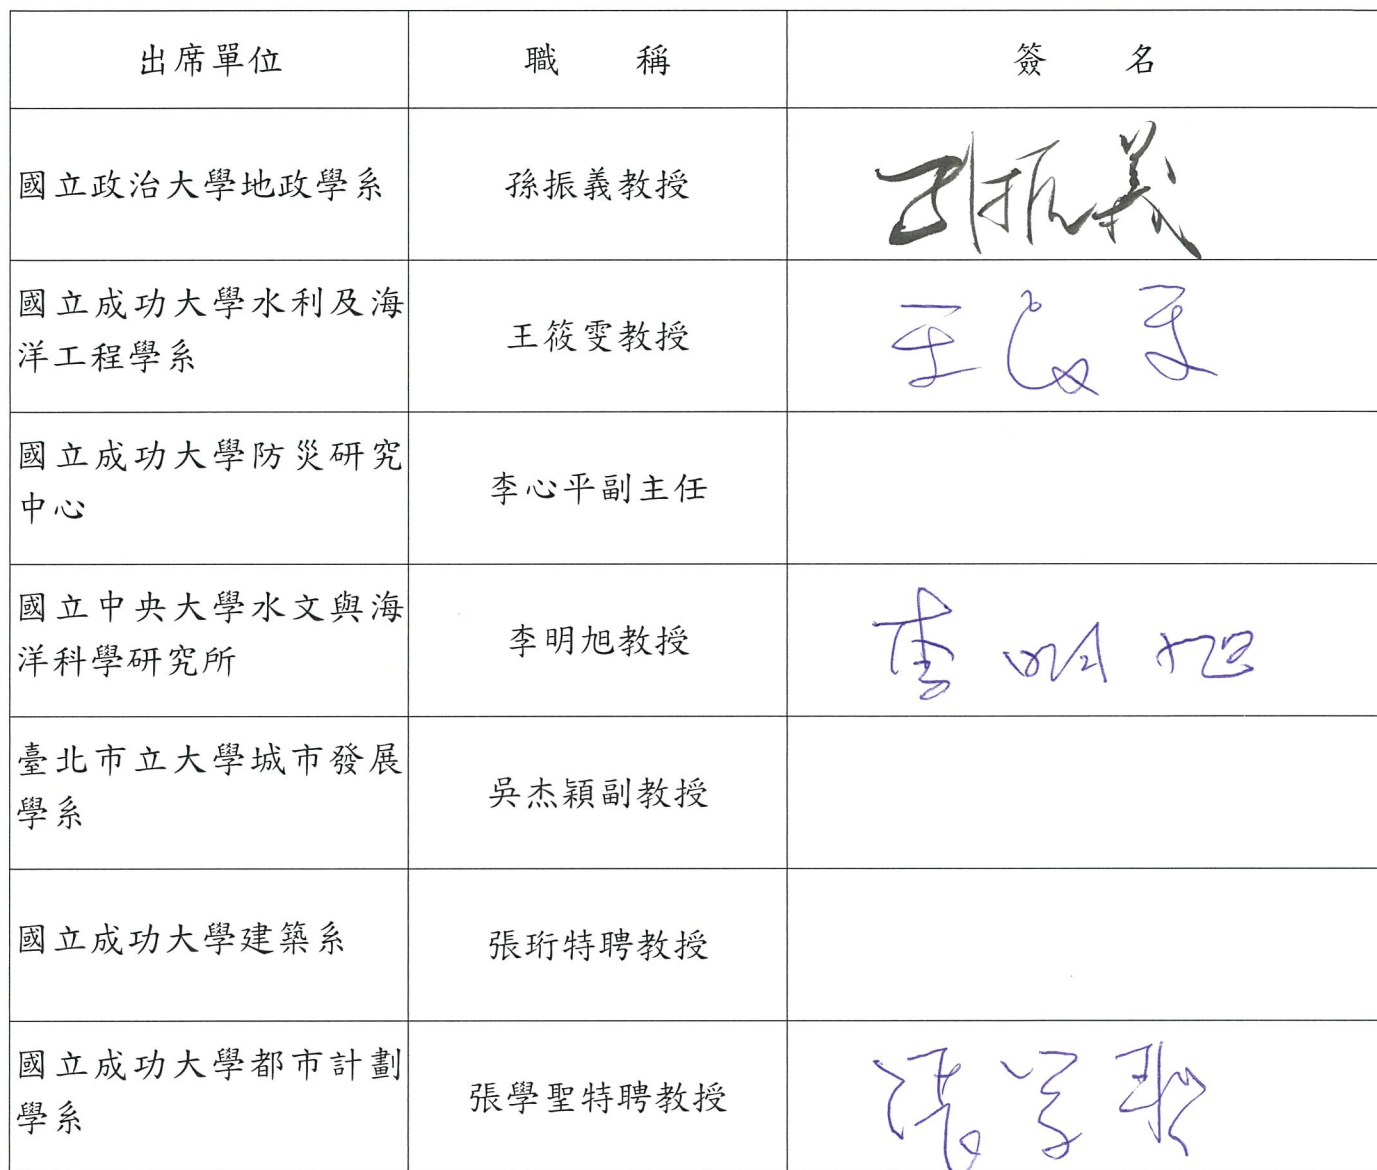 出席單位 職 稱 簽 名
國立政治大學地政學系 孫振義教授 孫振義
國立成功大學水利及海
洋工程學系 王筱雯教授 王筱雯
國立成功大學防災研究
中心 李心平副主任
國立中央大學水文與海
洋科學研究所 李明旭教授 李明旭
臺北市立大學城市發展
學系 吳杰穎副教授
國立成功大學建築系 張珩特聘教授
國立成功大學都市計劃
學系 張學聖特聘教授 張學聖